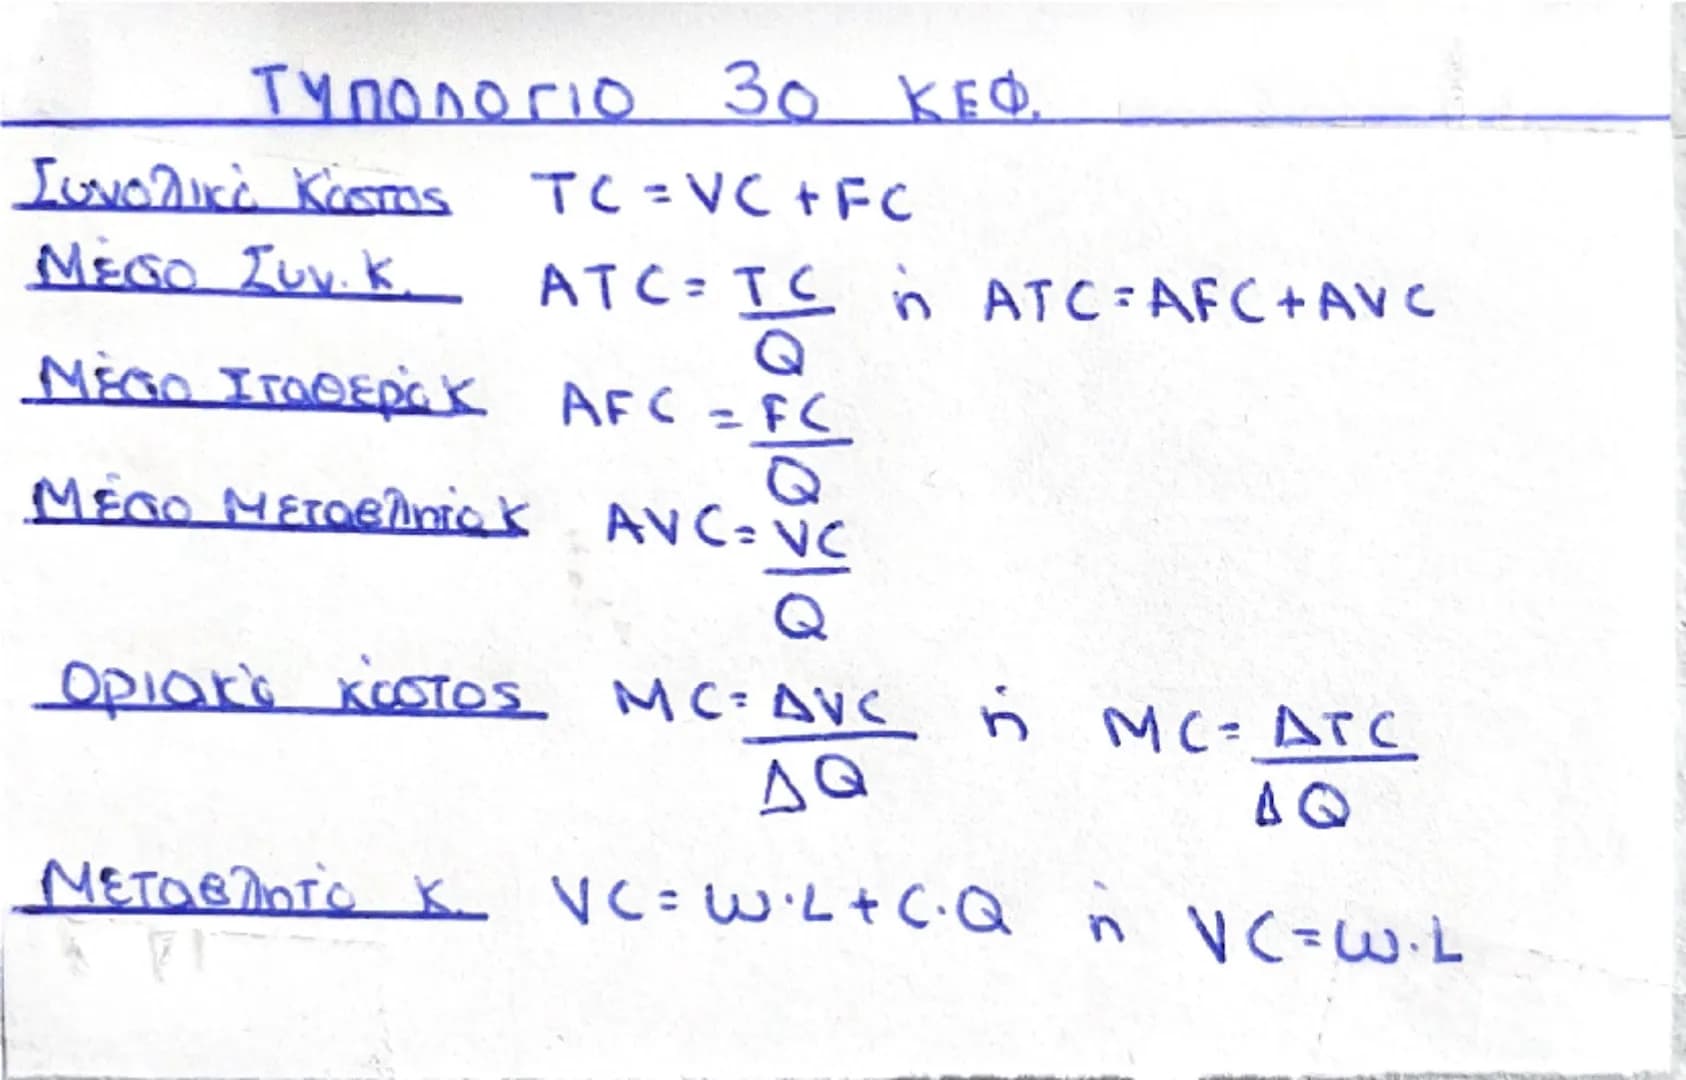 ΤΥΠΟΛΟΓΙΟ 3ο ΚΕΦ.
Συνολικό Κόστος TC = VC + FC
Μέσο Συν. Κ. ATC = TC/Q ή ATC = AFC + AVC
Μέσο Σταθερό Κ AFC = FC/Q
Μέσο Μεταβλητό Κ AVC = VC/Q
Οριακό κόστος MC = ΔVC/ΔQ ή MC = ΔTC/ΔQ
Μεταβλητό Κ. VC = W·L + C·Q ή VC = W·L